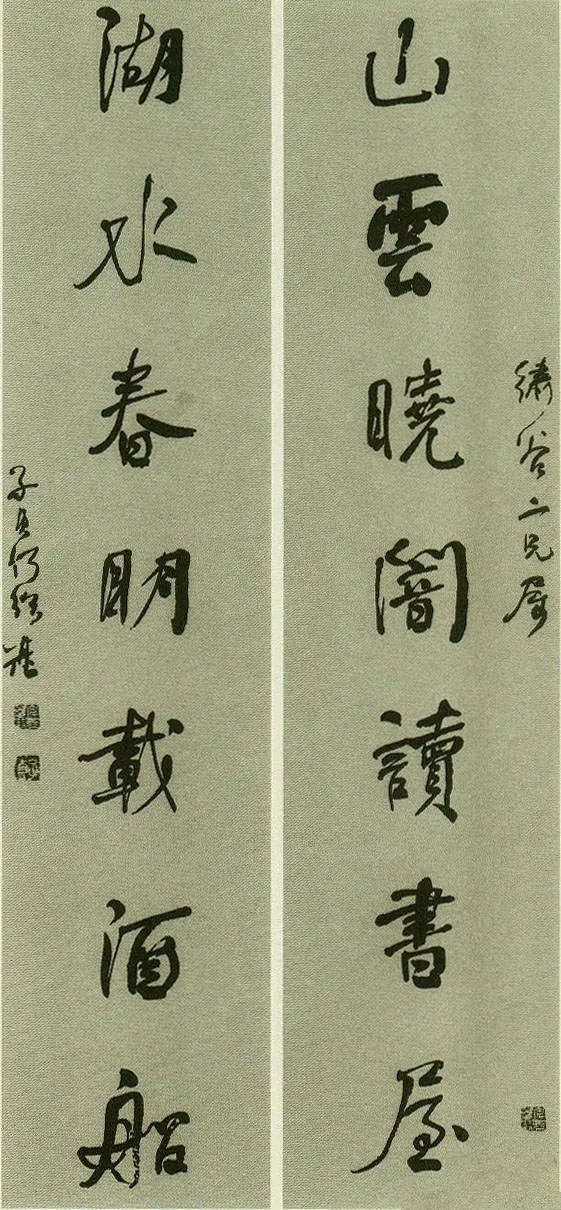 繡谷二兄屬
山雲曉闇讀書屋
湖水春明載酒船
子貞何紹基